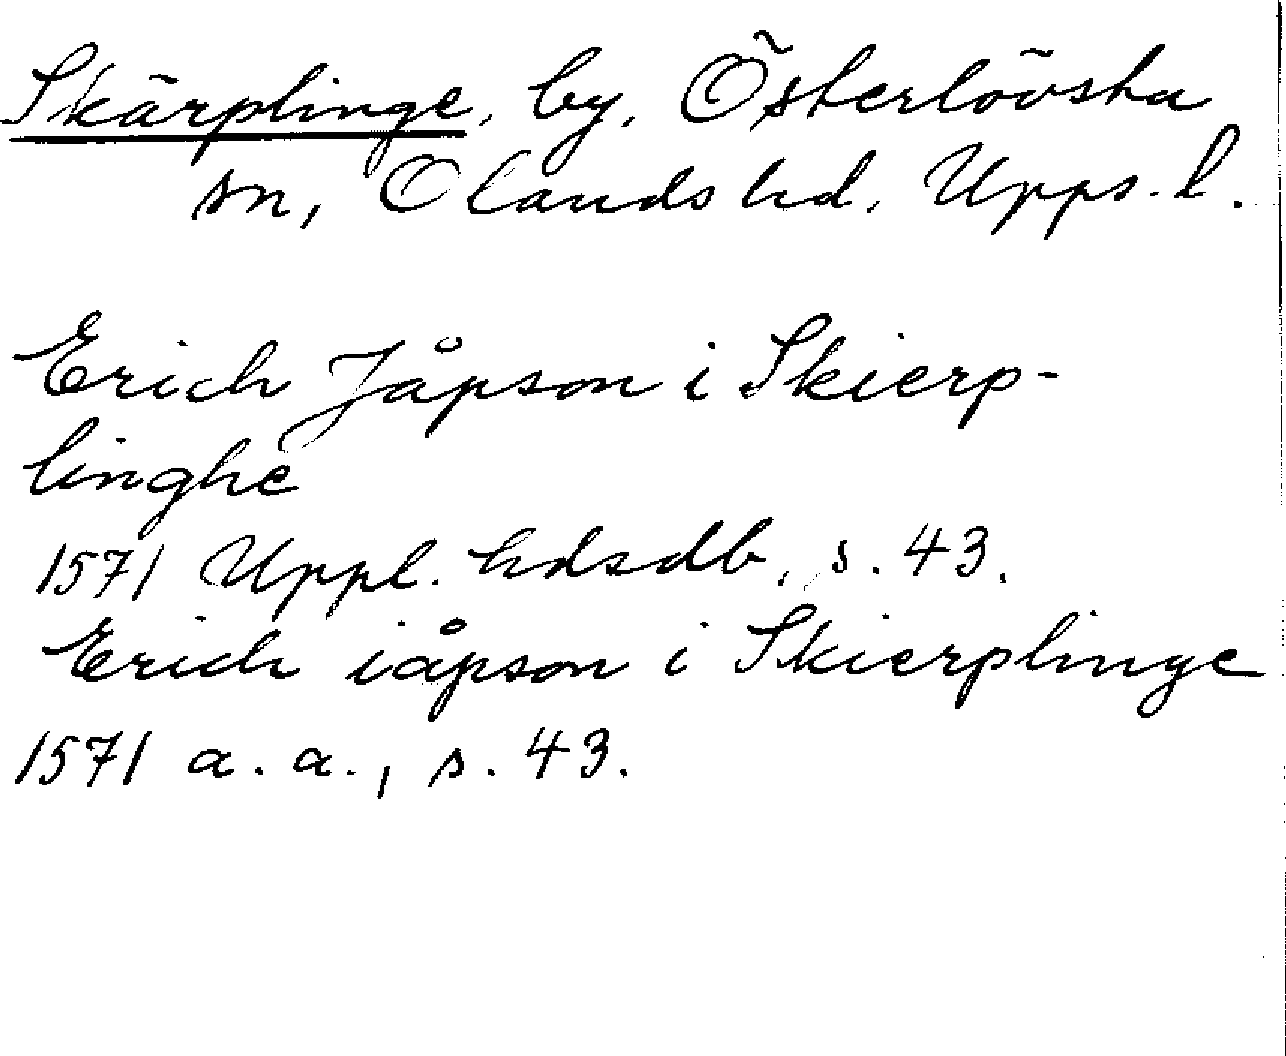 Skärplinge, by, Österlövsta
sn, Olands hd, Upps. l.
Erich Jåpson i Skierp-
linghe
1571 Uppl. hdsdb, s. 43.
Erich iåpson i Skierplinge
1571 a. a., s. 43.